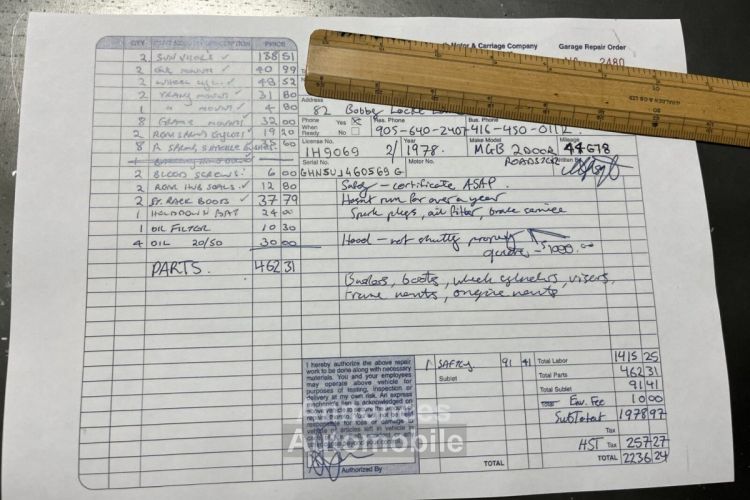 QTY. PART NO. AND DESCRIPTION PRICE
2 SUN VISORS ✓ 138 51
2 ENG MOUNTS ✓ 40 99
2 WHEEL CYL. ✓ 43 52
2 TRANS MOUNT ✓ 31 80
1 " MOUNT ✓ 4 80
8 FRAME MOUNTS ✓ 32 00
2 19 20
8 R SPRING SHACKLE BUSHES ✓ 60
2 BLEED SCREWS ✓ 6 00
2 REAR HUB SEALS ✓ 12 80
2 ST. RACK BOOTS ✓ 37 79
1 HOLD DOWN BAT 24 00
1 OIL FILTER 10 30
4 OIL 20/50 30 00
PARTS. 462 31
Motor & Carriage Company
Garage Repair Order
2480
Address
82 Bobby Locke
Phone When Ready
Yes
No
Res. Phone
905-640-2407
Bus. Phone
416-450-0112
License No.
1H9069
Year
2/1978.
Make Model
MGB 2DOOR
ROADSTER
Mileage
44678
Written By
Serial No.
GHN5UJ460569G
Motor No.
Safety - certificate ASAP.
Hasn't run for over a year
Spark plugs, oil filter, brake service
Hood - not shutting properly
quote - $1000.00
Bushes, boots, wheel cylinders, visors,
Frame mounts, engine mounts
I hereby authorize the above repair
work to be done along with necessary
materials. You and your employees
may operate above vehicle for
purposes of testing, inspection or
delivery at my own risk. An express
mechanic's lien is acknowledged on
Authorized By
Annonces
Automobile
1 SAFETY 91 41
Sublet
TOTAL
Total Labor 1415 25
Total Parts 462 31
Total Sublet 91 41
Env. Fee 10 00
Subtotal 1978 97
Tax
HST Tax 257 27
TOTAL 2236 24